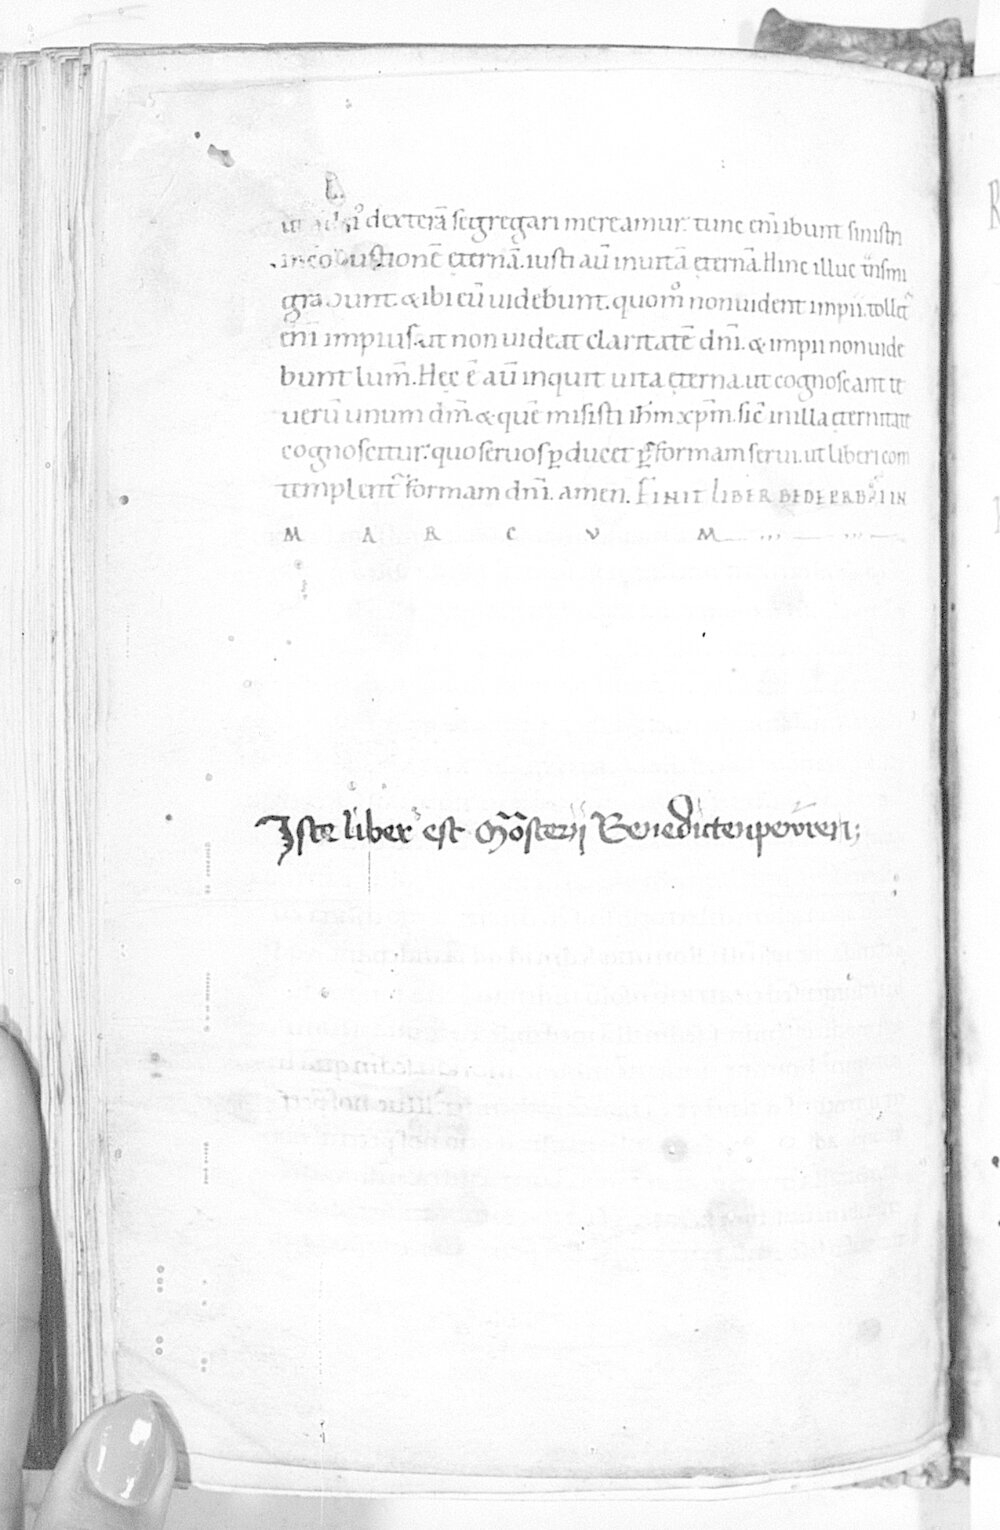 dexterā segregari mereamur. tunc eni ibunt sinistri
in cōbustionē ęternā. iusti aū in uitā ęternā. Hinc illuc
grabunt. & ibi eū uidebunt. quom̊ non uident impii. tollet̄
eni impius. ut non uideat claritatē dn̄i. & impii non uide
bunt lum̄. Hęc ē aū inquit uita ęterna. ut cognoscant te
uerū unum dm̄. & quē misisti ihm̄. xpm̄. sic̄ in illa ęternitate
cognoscitur. quo seruos ꝑducet ꝑ formam serui. ut liberi con
templent̄ formam dn̄i. amen. FINIT LIBER BEDE PRB̄I IN
MARCUM
Iste liber est Mōsterij Benedictenpewren;